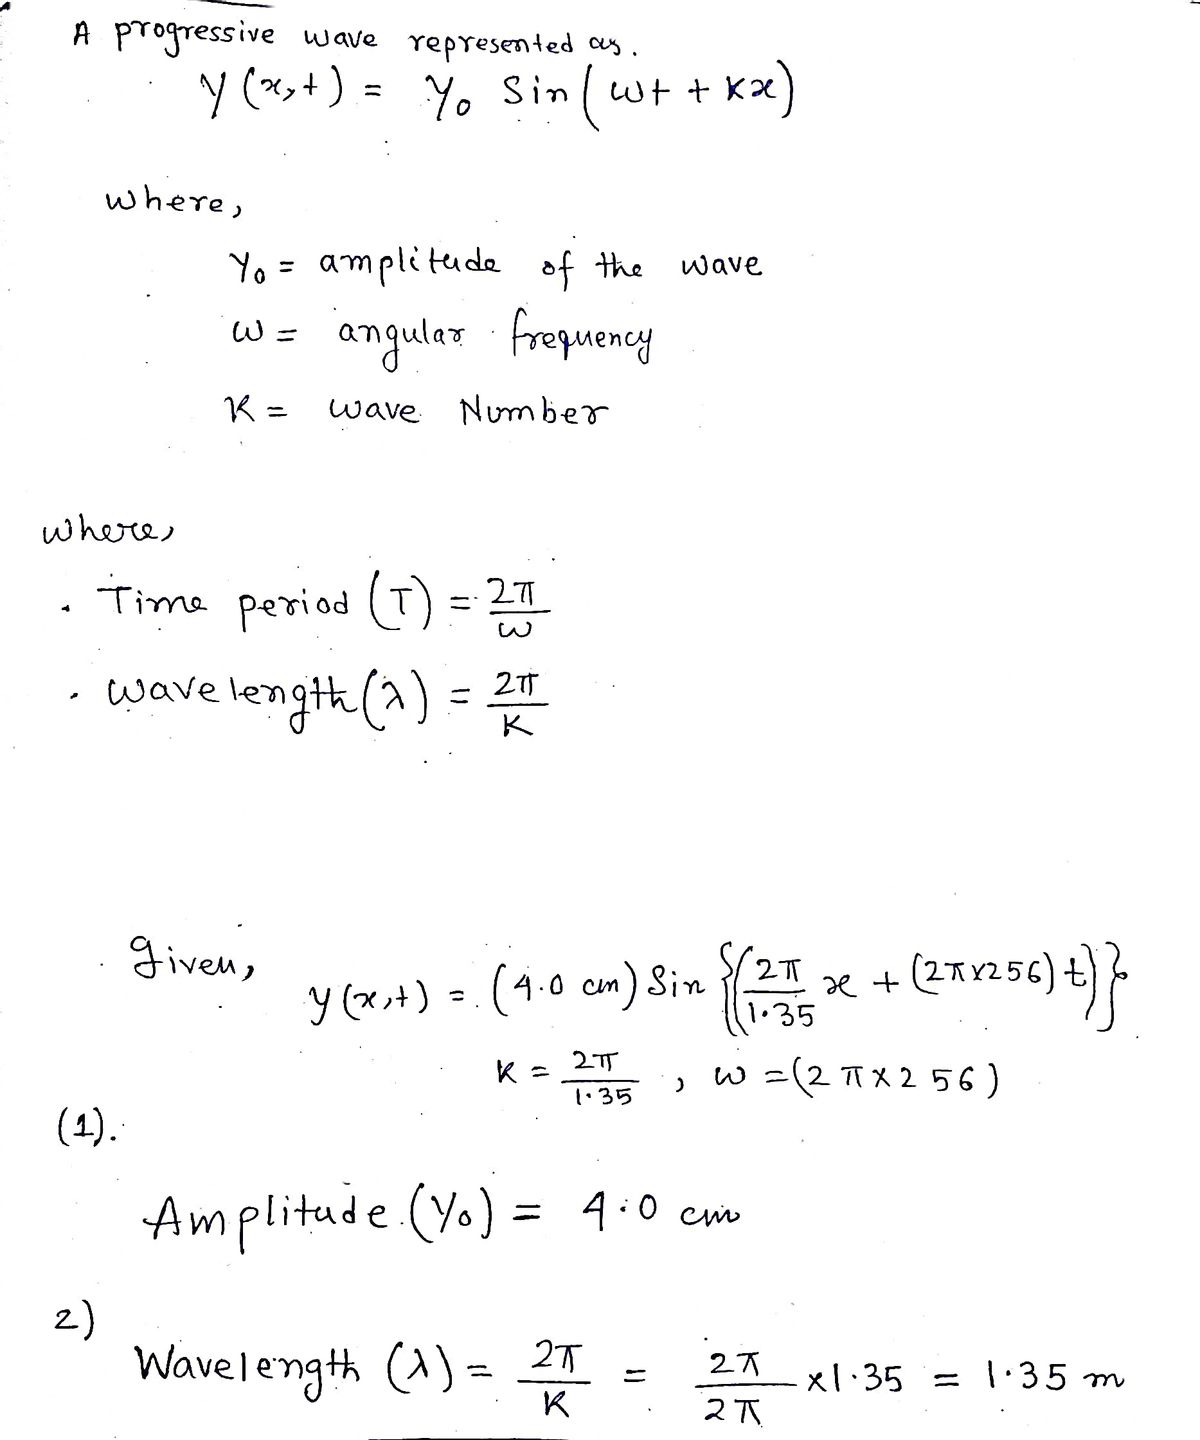 A progressive wave represented as.
y (x,t) = Y₀ Sin ( ωt + Kx )
where,
Y₀ = amplitude of the wave
ω = angular frequency
K = wave Number
where,
. Time period (T) = 2π/ω
. wavelength (λ) = 2π/K
Given,
y (x,t) = (4.0 cm) Sin {(2π/1.35 x + (2π×256) t)}
K = 2π/1.35 , ω = (2π×256)
(1).
Amplitude (Y₀) = 4.0 cm
2)
Wavelength (λ) = 2π/K = 2π/2π ×1.35 = 1.35 m